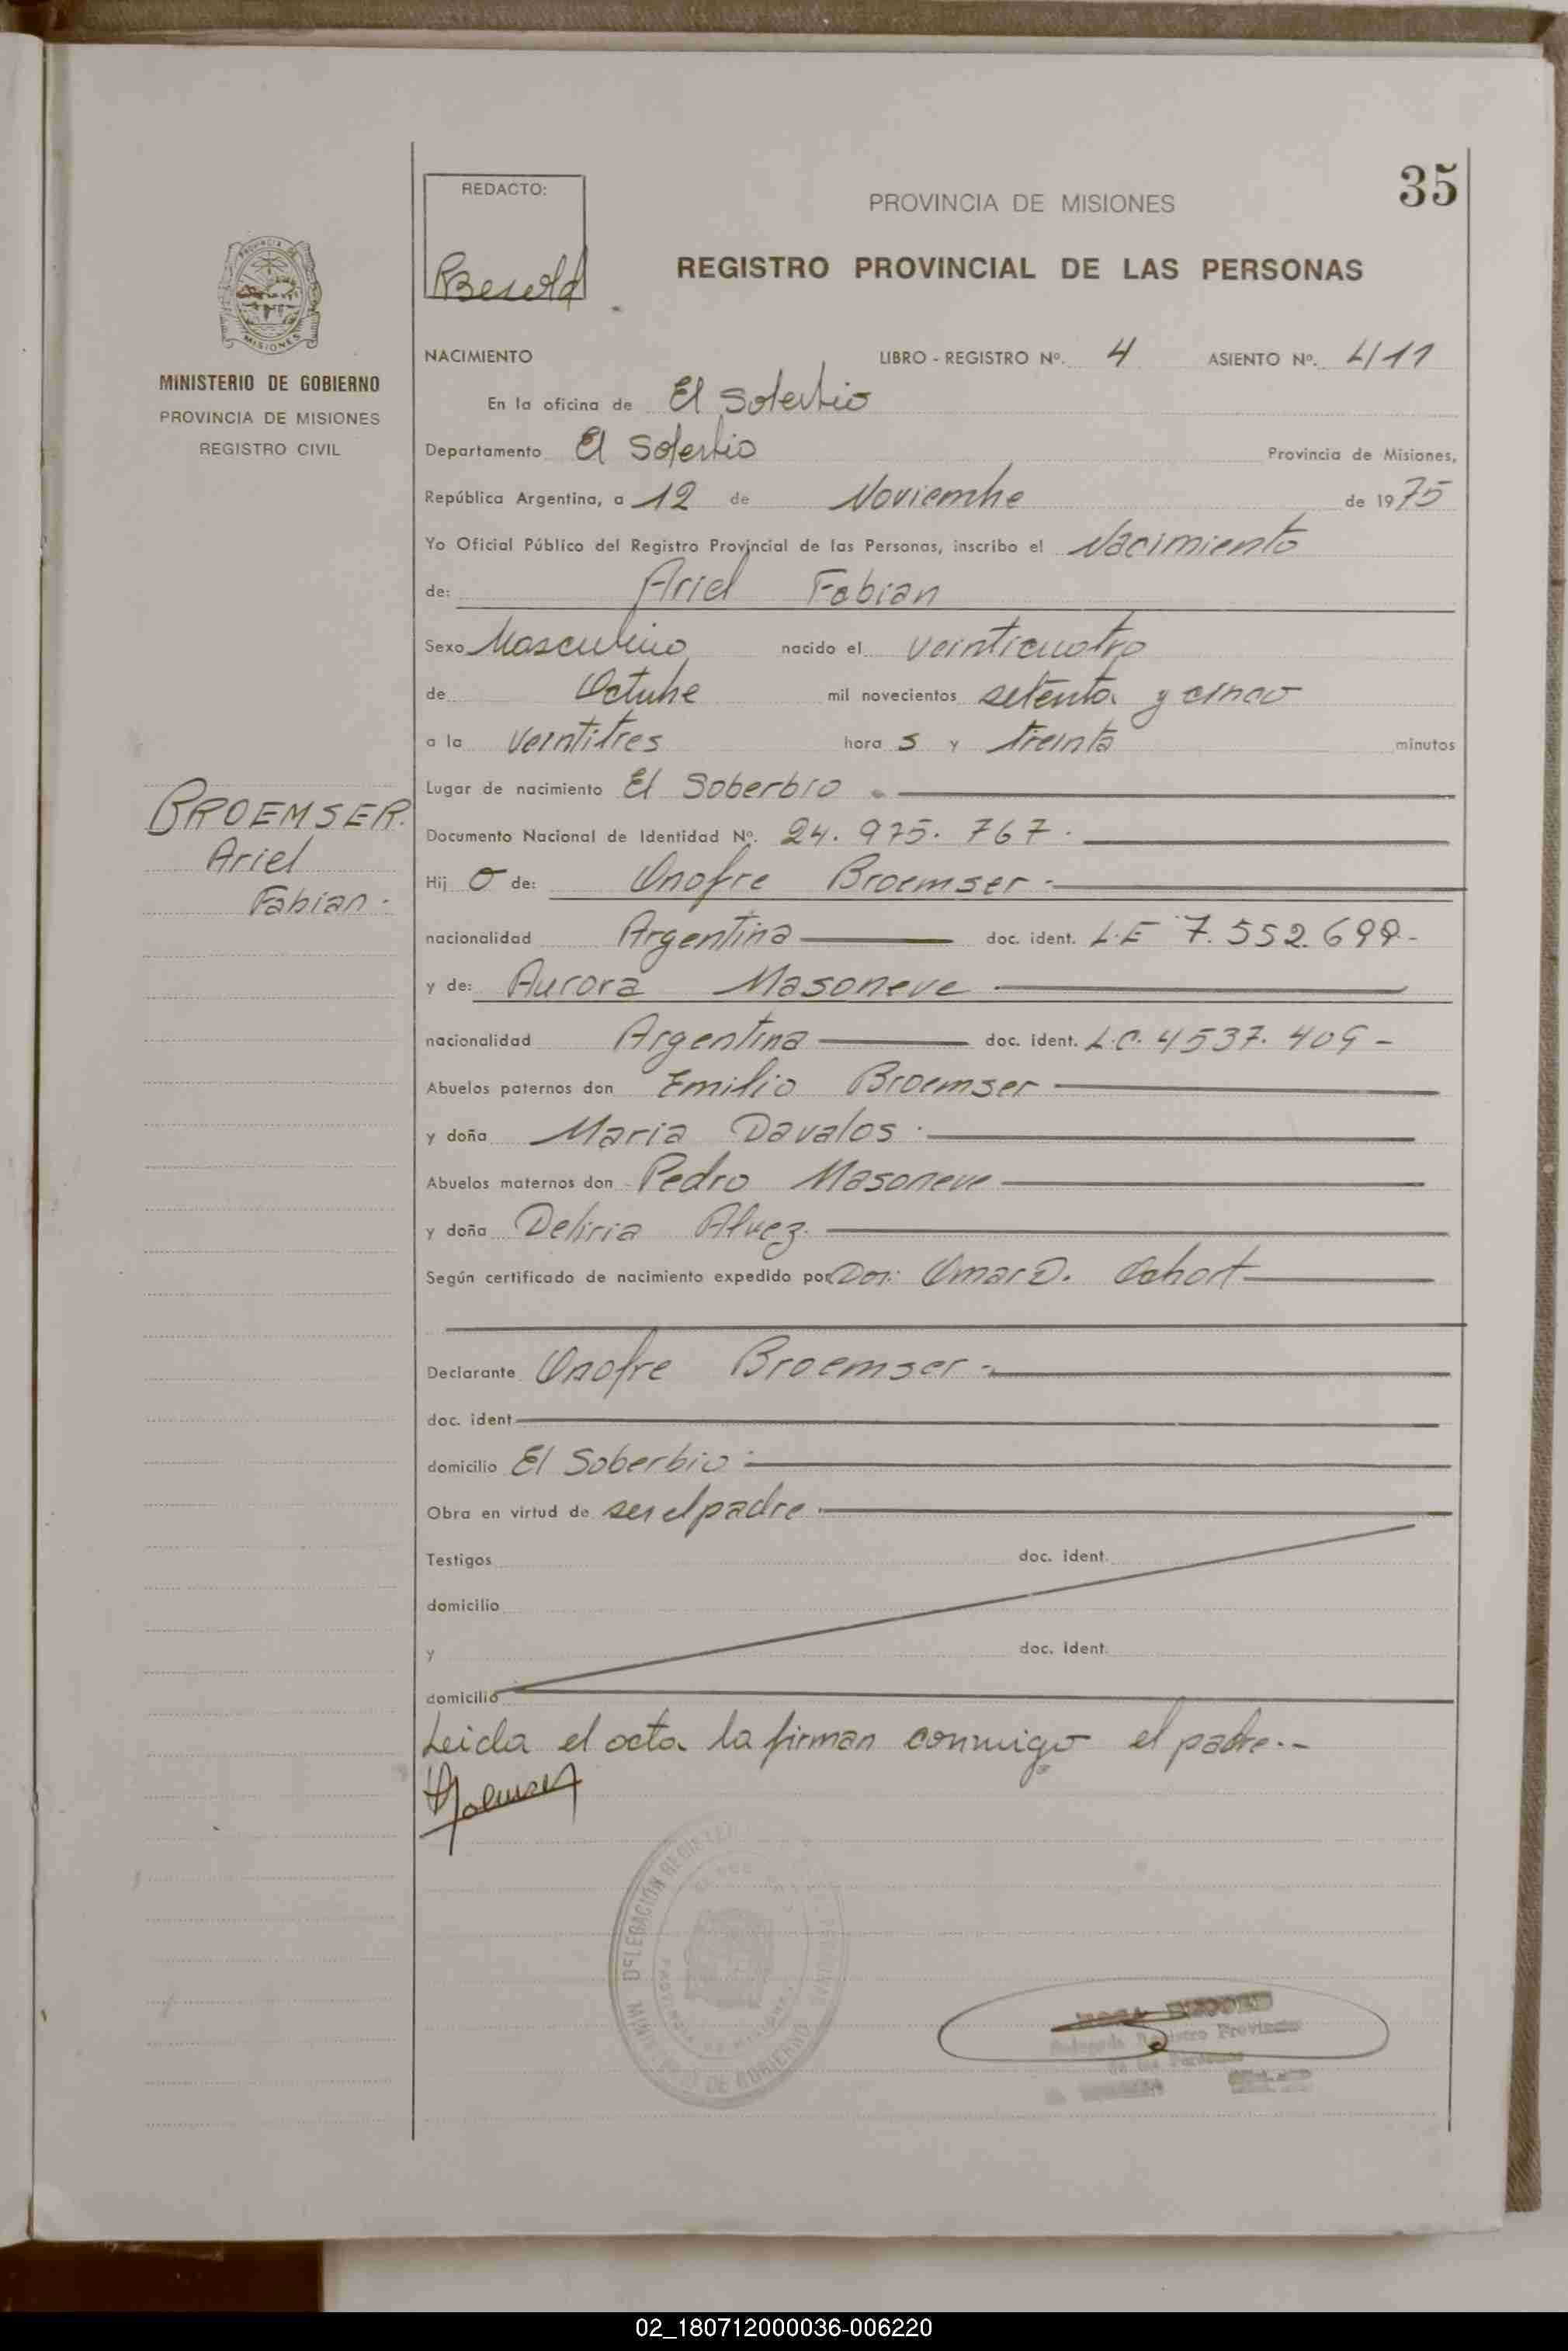 35
REDACTO:
PROVINCIA DE MISIONES
REGISTRO PROVINCIAL DE LAS PERSONAS
PROVINCIA DE
MISIONES
MINISTERIO DE GOBIERNO
PROVINCIA DE MISIONES
REGISTRO CIVIL
NACIMIENTO LIBRO - REGISTRO Nº. 4 ASIENTO Nº. 411
En la oficina de El Soberbio
Departamento El Soberbio Provincia de Misiones,
República Argentina, a 12 de Noviembre de 1975
Yo Oficial Público del Registro Provincial de las Personas, inscribo el Nacimiento
de: Ariel Fabian
Sexo Masculino nacido el veinticuatro
de Octubre mil novecientos setenta y cinco
a la veintitres hora s y treinta minutos
Lugar de nacimiento El Soberbio
BROEMSER.
Ariel
Fabian.-
Documento Nacional de Identidad Nº. 24.975.767.
Hij o de: Onofre Broemser.-
nacionalidad Argentina doc. ident. L.E 7.552.699-
y de: Aurora Masoneve
nacionalidad Argentina doc. ident. L.C. 4537.409-
Abuelos paternos don Emilio Broemser
y doña Maria Davalos.
Abuelos maternos don Pedro Masoneve
y doña Deliria Alvez.
Según certificado de nacimiento expedido por Dor: Omar D.
Declarante Onofre Broemser.-
doc. ident
domicilio El Soberbio
Obra en virtud de ser el padre
Testigos doc. ident.
domicilio
y doc. ident.
domicilio
Leida el acta la firman conmigo el padre.-
DELEGACION
MINISTERIO DE GOBIERNO
PROVINCIA DE MISIONES
Registro Provincial
de las Personas
02_180712000036-006220